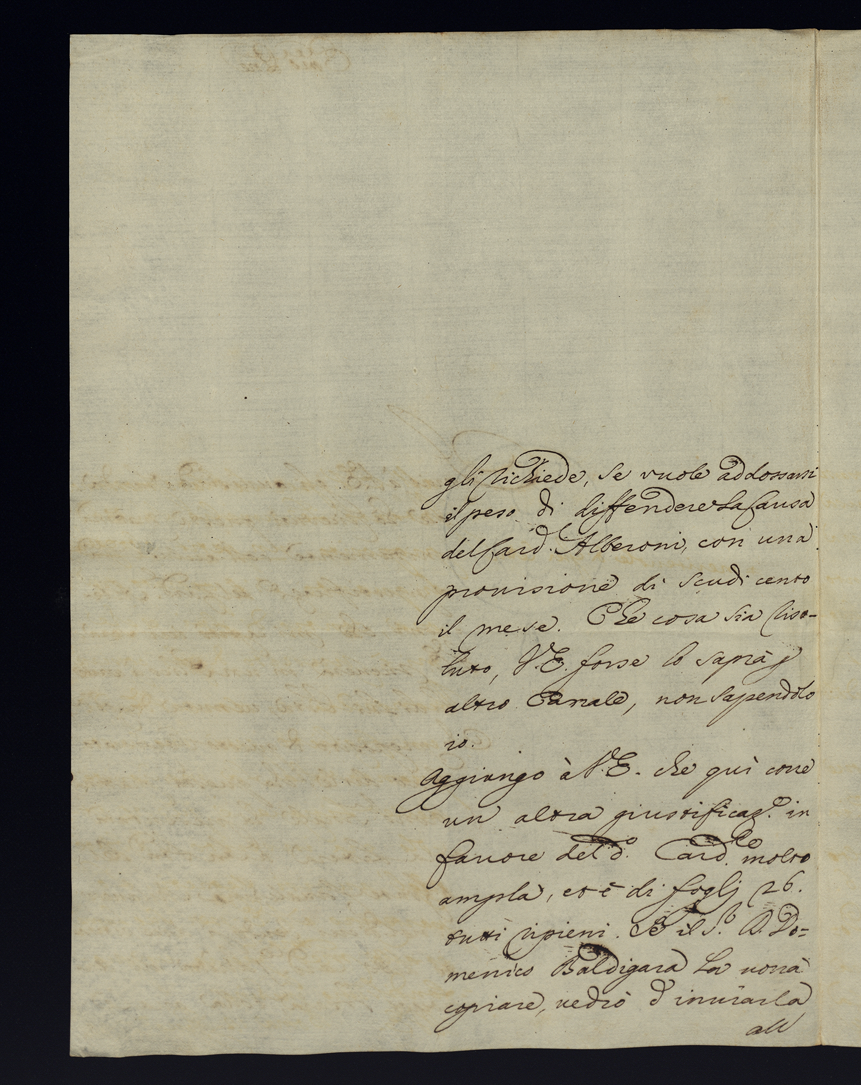 gli richiede, se vuole addossarsi
il peso di diffendere la Causa
del Card. Alberoni, con una
provisione di scudi cento
il mese. Che cosa sia riso-
luto, V.E. forse lo saprà p
altro Canale, non sapendolo
io.
Aggiungo à V.E. che quì corre
un altra giustificaz.e in
favore del d.o Card.le molto
ampla, et è di foglj 26.
tutti ripieni. Se il S.r D. Do-
menico Baldigara la vorrà
copiare, vedrò d'inviarla
all'